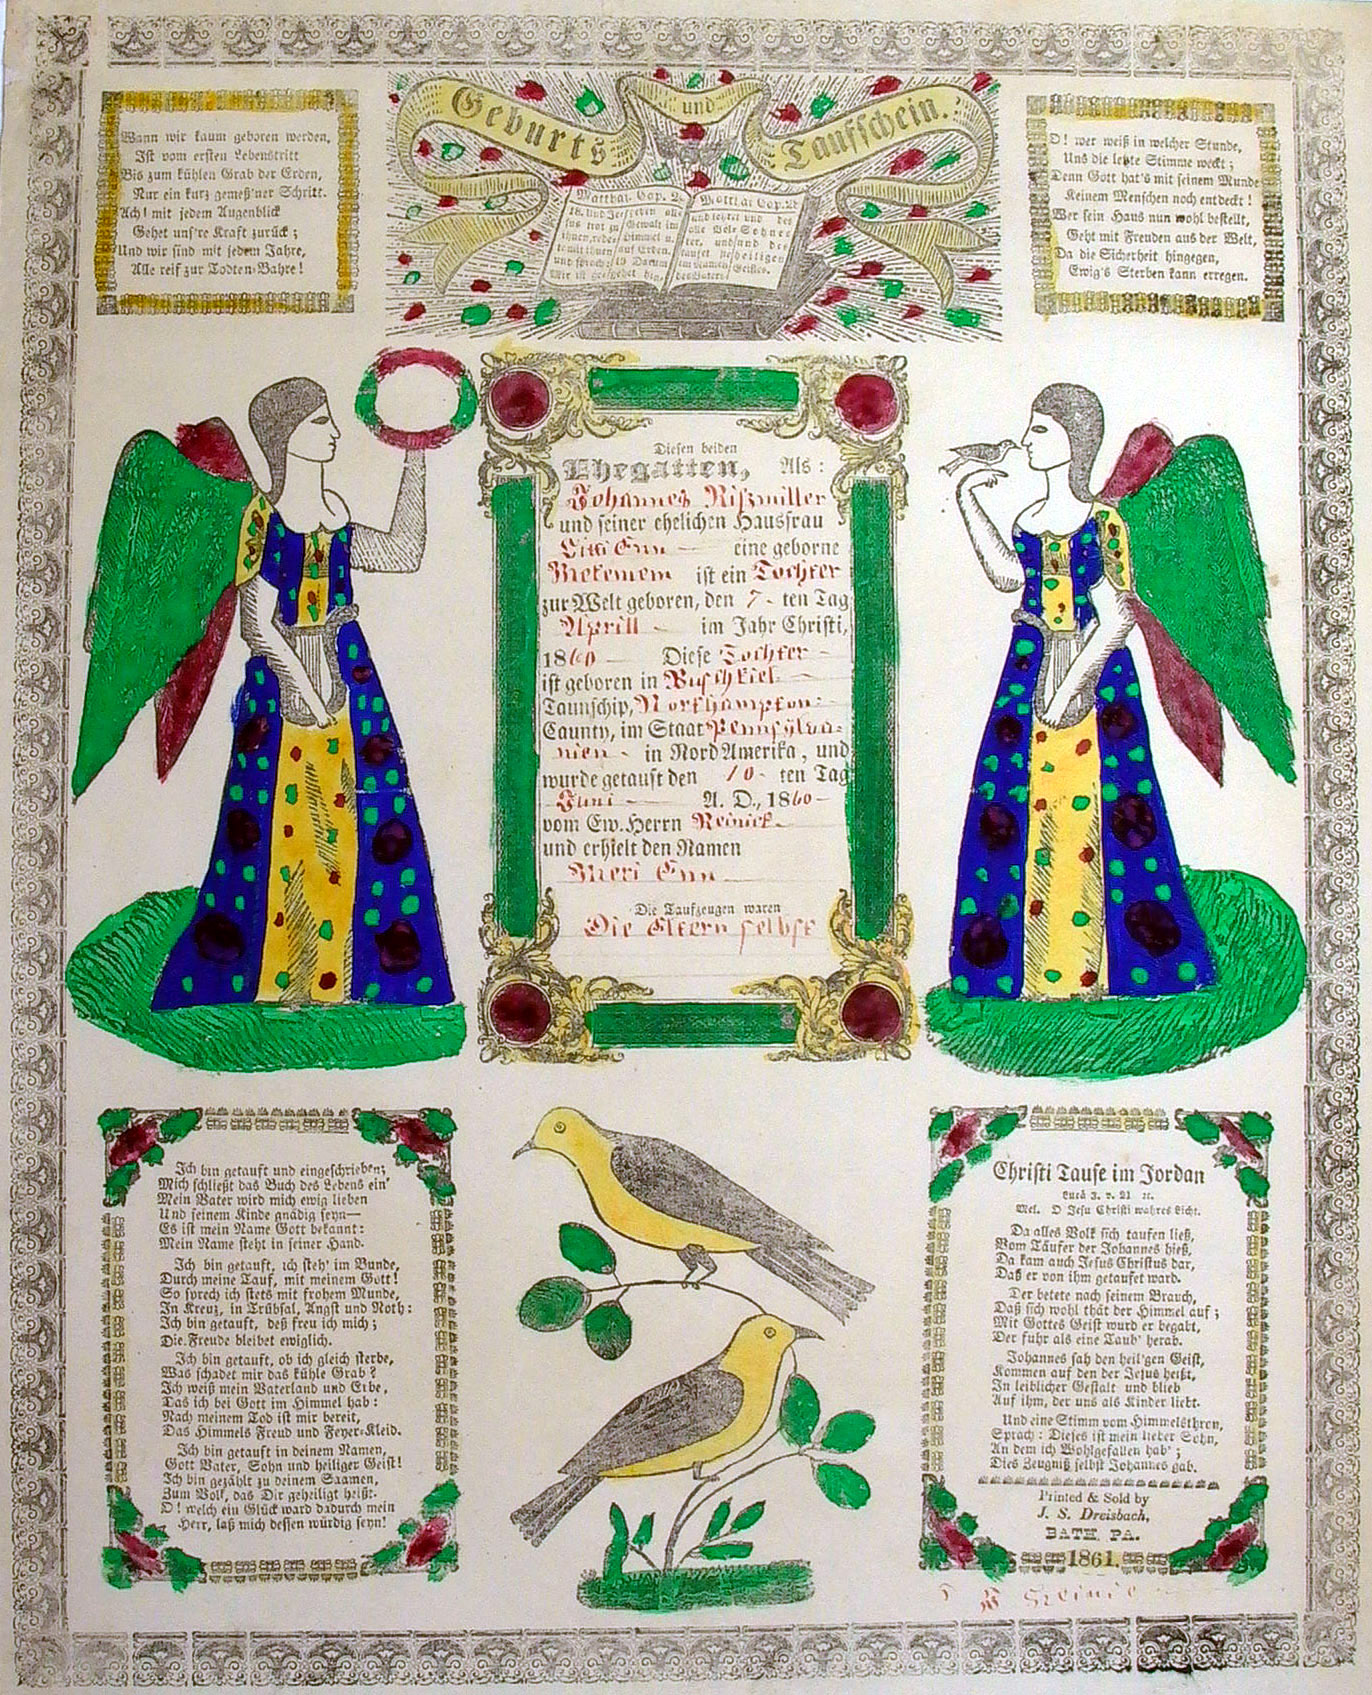 Geburts und Taufschein.
Wann wir kaum geboren werden,
Ist vom ersten Lebenstritt
Bis zum kühlen Grab der Erden,
Nur ein kurz gemeß'ner Schritt.
Ach! mit jedem Augenblick
Gehet uns're Kraft zurück;
Und wir sind mit jedem Jahre,
Alle reif zur Todten-Bahre!
Matthai. Cap. 28
18. Und Jesus
O! wer weiß in welcher Stunde,
Uns die letzte Stimme weckt;
Denn Gott hat's mit seinem Munde
Keinem Menschen noch entdeckt!
Wer sein Haus nun wohl bestellt,
Geht mit Freuden aus der Welt,
Da die Sicherheit hingegen,
Ewig's Sterben kann erregen.
Diesen beiden
Ehegatten, Als:
Johannes Rißmiller
und seiner ehelichen Hausfrau
eine geborne
ist ein Tochter
zur Welt geboren, den 7- ten Tag
Aprill im Jahr Christi,
1860 Diese Tochter
ist geboren in Buschkiel
Taunschip, Northampton
Caunty, im Staat Pennsylva-
nien in Nord Amerika, und
wurde getauft den 10 ten Tag
Juni A. D., 1860
vom Ew. Herrn Reinick
und erhielt den Namen
Meri Enn
Die Taufzeugen waren
Die Eltern selbst
Ich bin getauft und eingeschrieben;
Mich schließt das Buch des Lebens ein'
Mein Vater wird mich ewig lieben
Und seinem Kinde gnädig seyn—
Es ist mein Name Gott bekannt:
Mein Name steht in seiner Hand.
Ich bin getauft, ich steh' im Bunde,
Durch meine Tauf, mit meinem Gott!
So sprech ich stets mit frohem Munde,
In Kreuz, in Trübsal, Angst und Noth:
Ich bin getauft, deß freu ich mich;
Die Freude bleibet ewiglich.
Ich bin getauft, ob ich gleich sterbe,
Was schadet mir das kühle Grab?
Ich weiß mein Vaterland und Erbe,
Das ich bei Gott im Himmel hab:
Nach meinem Tod ist mir bereit,
Das Himmels Freud und Feyer-Kleid.
Ich bin getauft in deinem Namen,
Gott Vater, Sohn und heiliger Geist!
Ich bin gezählt zu deinem Saamen,
Zum Volk, das Dir geheiligt heißt.
O! welch ein Glück ward dadurch mein
Herr, laß mich dessen würdig seyn!
Christi Taufe im Jordan
Lucä 3. v. 21 ꝛc.
Mel. O Jesu Christi wahres Licht.
Da alles Volk sich taufen ließ,
Vom Täufer der Johannes hieß,
Da kam auch Jesus Christus dar,
Daß er von ihm getaufet ward.
Der betete nach seinem Brauch,
Daß sich wohl thät der Himmel auf;
Mit Gottes Geist wurd er begabt,
Der fuhr als eine Taub' herab.
Johannes sah den heil'gen Geist,
Kommen auf den der Jesus heißt,
In leiblicher Gestalt und blieb
Auf ihm, der uns als Kinder liebt.
Und eine Stimm vom Himmelsthron,
Sprach: Dieses ist mein lieber Sohn,
An dem ich Wohlgefallen hab';
Dies Zeugniß selbst Johannes gab.
Printed & Sold by
J. S. Dreisbach,
BATH, PA.
1861.